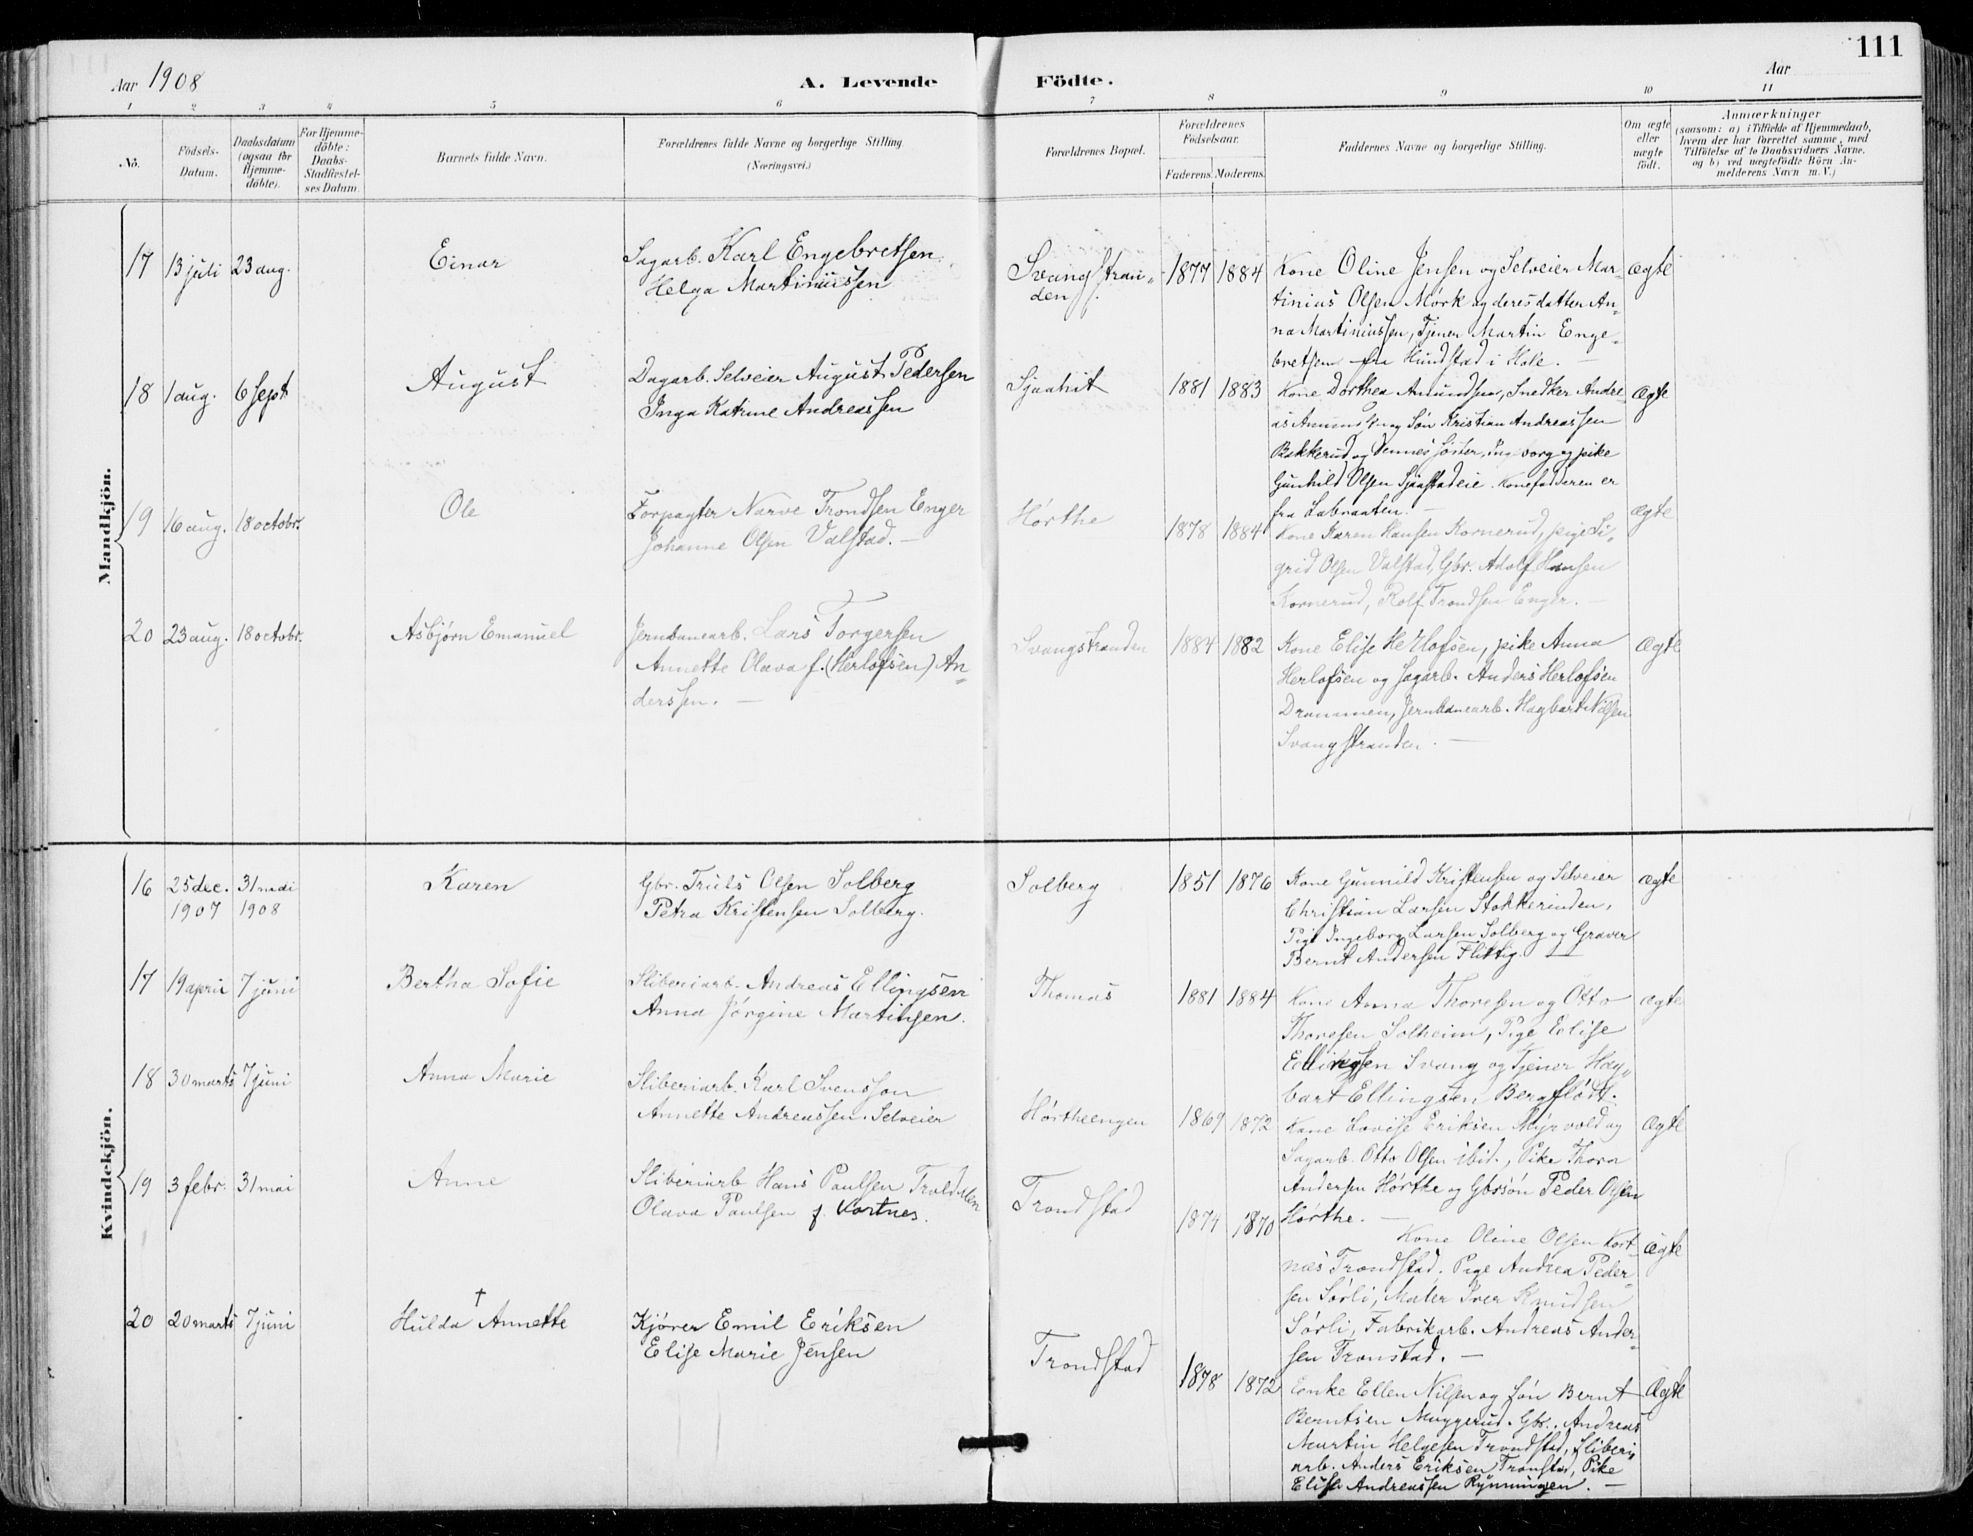 111
Aar 1908
A. Levende Födte.
Aar
1 2 3 4 5 6 7 8 9 10 11
No.
Födsels-Datum.
Daabsdatum (ogsaa for Hjemme-döbte).
For Hjemme-döbte: Daabs-Stadfæstel-ses Datum.
Barnets fulde Navn.
Forældrenes fulde Navne og borgerlige Stilling. (Næringsvei.)
Forældrenes Bopæl.
Forældrenes Födselsaar.
Faderens. Moderens.
Faddernes Navne og borgerlige Stilling.
Om ægte eller uægte födt.
Anmærkninger
(saasom: a) i Tilfælde af Hjemmedaab,
hvem der har forrettet samme, med
Tilföielse af to Daabsvidners Navne,
og b) ved uægtefödte Börn An-
melderens Navn m. V.)
Mandkjön.
17 13 juli 23 aug. Einar
Sagarb. Karl Engebretsen
Helga Martiniussen
Svangstran-
den
1877 1884
Kone Oline Jensen og Selveier Mar-
tinius Olsen Mörk og deres datter An-
na Martiniussen, Tjener Martin Enge-
bretsen fra Hundstad i Hole. —
ægte
18 1 aug. 6 Sept August
Dagarb. Selveier August Pedersen
Inga Katrine Andreassen
Sjaahit
1881 1883
Kone Dorthea Amundsen, Snedker Andre-
as Amundsen og Sön Kristian Andreassen
Bakkerud og Dennes Söster, Ingeborg og pike
Gunhild Olsen Sjaastadeie. Konefadderen er
fra Labraaten. —
Ægte
19 16 aug. 18 octobr. Ole
Forpagter Narve Trondsen Enger
Johanne Olsen Valstad. —
Hörthe
1878 1884
Kone Karen Hansen Kornerud, pige Si-
grid Olsen Valstad, Gbr. Adolf Hansen
Kornerud, Rolf Trondsen Enger. —
ægte
20 23 aug. 18 octobr. Asbjørn Emanuel
Jernbanearb. Lars Torgersen
Annette Olava f. (Herlofsen) An-
derssen. —
Svangstranden
1884 1882
Kone Elise Herlofsen, pike Anna
Herlofsen og Sagarb. Anders Herlofsen
Drammen, Jernbanearb. Hagbart Nilsen
Svangstranden. —
Ægte
Kvindekjön.
16 25 dec. 1907 31 mai 1908 Karen
Gbr. Truls Olsen Solberg
Petra Kristensen Solberg.
Solberg
1851 1876
Kone Gunnild Kristensen og Selveier
Christian Larsen Stokkerinden,
Pige Ingeborg Larsen Solberg og Graver
Bernt Andersen Flittig. —
ægte
17 19 april 7 juni Bertha Sofie
Sliberiarb. Andreas Ellingsen
Anna Jörgine Martinsen.
Thomas
1881 1884
Kone Anna Thoresen og Otto
Thoresen Solheim, Pige Elise
Ellingsen Svang og Tjener Hag-
bart Ellingsen Bergflödt.
ægte
18 30 marts 7 juni Anna Marie
Sliberiarb. Karl Svensson
Annette Andreassen. Selveier
Hörtheengen
1869 1872
Kone Lovise Eriksen Myrvold og
Sagarb. Otto Olsen ibid., Pike Thora
Andersen Hörthe og Gbrsön Peder Olsen
Hörthe. —
Ægte
19 3 febr. 31 mai Anne
Sliberiarb Hans Paulsen Troldalen
Olava Paulsen f. Kortnes.
Trondstad
1874 1870
Kone Oline Olsen Kort-
næs Trondstad, Pige Andrea Peder-
sen Sörli, Maler Iver Knudsen
Sörli, Fabrikarb. Andreas Ander-
sen Tronstad. —
Ægte
20 20 marts 7 juni Hulda † Annette
Kjörer Emil Eriksen
Elise Marie Jensen
Trondstad
1878 1872
Enke Ellen Nilsen og Sön Bernt
Berntsen Muggerud. Gbr. Andreas
Martin Helgesen Trondstad, Sliberi-
arb. Anders Eriksen Tronstad, Pike
Elise Andreassen Rynningen. —
Ægte